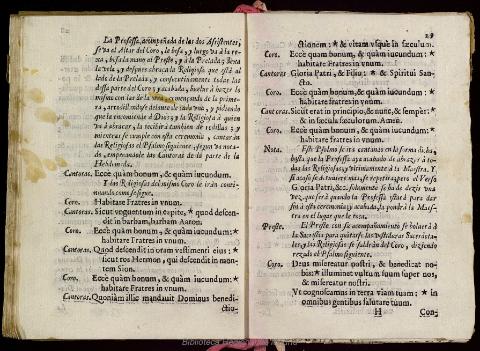 La Professa, acompañada de las dos Asistentes,
se va al Altar del Coro, le besa, y luego va à la re-
xa, besa la mano al Preste, y à la Prelada; besa
la vela, y despues abraça la Religiosa que està al
lado de la Prelada, y consecutivamente todas las
dessa parte del Coro; y acabada, buelve à hazer lo
mismo con las de la otra, començando de la prime-
ra, arrodillandose delante de cada una, y pidiendo
que la encomiende à Dios; y la Religiosa à quien
và à abraçar, la recibirà tambien de rodillas: y
mientras se cumple con esta ceremonia, cantaràn
las Religiosas el Psalmo siguiente, segun và nota-
do, empeçandole las Cantoras de la parte de la
Hebdomada.
Cantoras. Eccè quàm bonum, & quàm iucundum:
Y las Religiosas del mismo Coro le iràn conti-
nuando como se sigue.
Coro. Habitare Fratres in vnum.
Cantoras. Sicut vnguentum in capite, * quod descen-
dit in barbam, barbam Aaron.
Coro. Eccè quàm bonum, & quàm iucundum: *
habitare Fratres in vnum.
Cantoras. Quod descendit in oram vestimenti eius: *
sicut ros Hermon, qui descendit in mon-
tem Sion.
Coro. Eccè quàm bonum, & quàm iucundum: *
habitare Fratres in vnum.
Cantoras. Quoniàm illic mandavit Dominus benedi-
ctio-
29
ctionem: * & vitam vsque in sæculum.
Coro. Eccè quàm bonum, & quàm iucundum: *
habitare Fratres in vnum.
Cantoras. Gloria Patri, & Filio: * & Spiritui San-
cto.
Coro. Eccè quàm bonum, & quàm iucundum: *
habitare fratres in vnum.
Cantoras. Sicut erat in principio, & nunc, & semper: *
& in sæcula sæculorum. Amen.
Coro. Eccè quàm bonum, & quàm iucundum: *
habitare fratres in vnum.
Nota. Este Psalmo se irà cantando en la forma dicha,
hasta que la Professa aya acabado de abraçar à to-
das las Religiosas, y vltimamente à la Maestra. Y
si acaso se detuviere mas, se repetirà pero el Verso
Gloria Patri, &c. solamente se ha de dezir vna
vez, que serà quando la Professa estarà para dar
fin à esta ceremonia; y acabada, la pondrà la Maes-
tra en el lugar que le toca.
Preste. El Preste con su acompañamiento se bolverà à
la Sacristia para quitarse las vestiduras Sacerdota-
les, y las Religiosas se saldràn del Coro, diziendo
rezado el Psalmo siguiente.
Coro. Deus misereatur nostri, & benedicat no-
bis: * illuminet vultum suum super nos,
& misereatur nostri.
Vt cognoscamus in terra viam tuam: * in
omnibus gentibus salutare tuum.
H
Con-